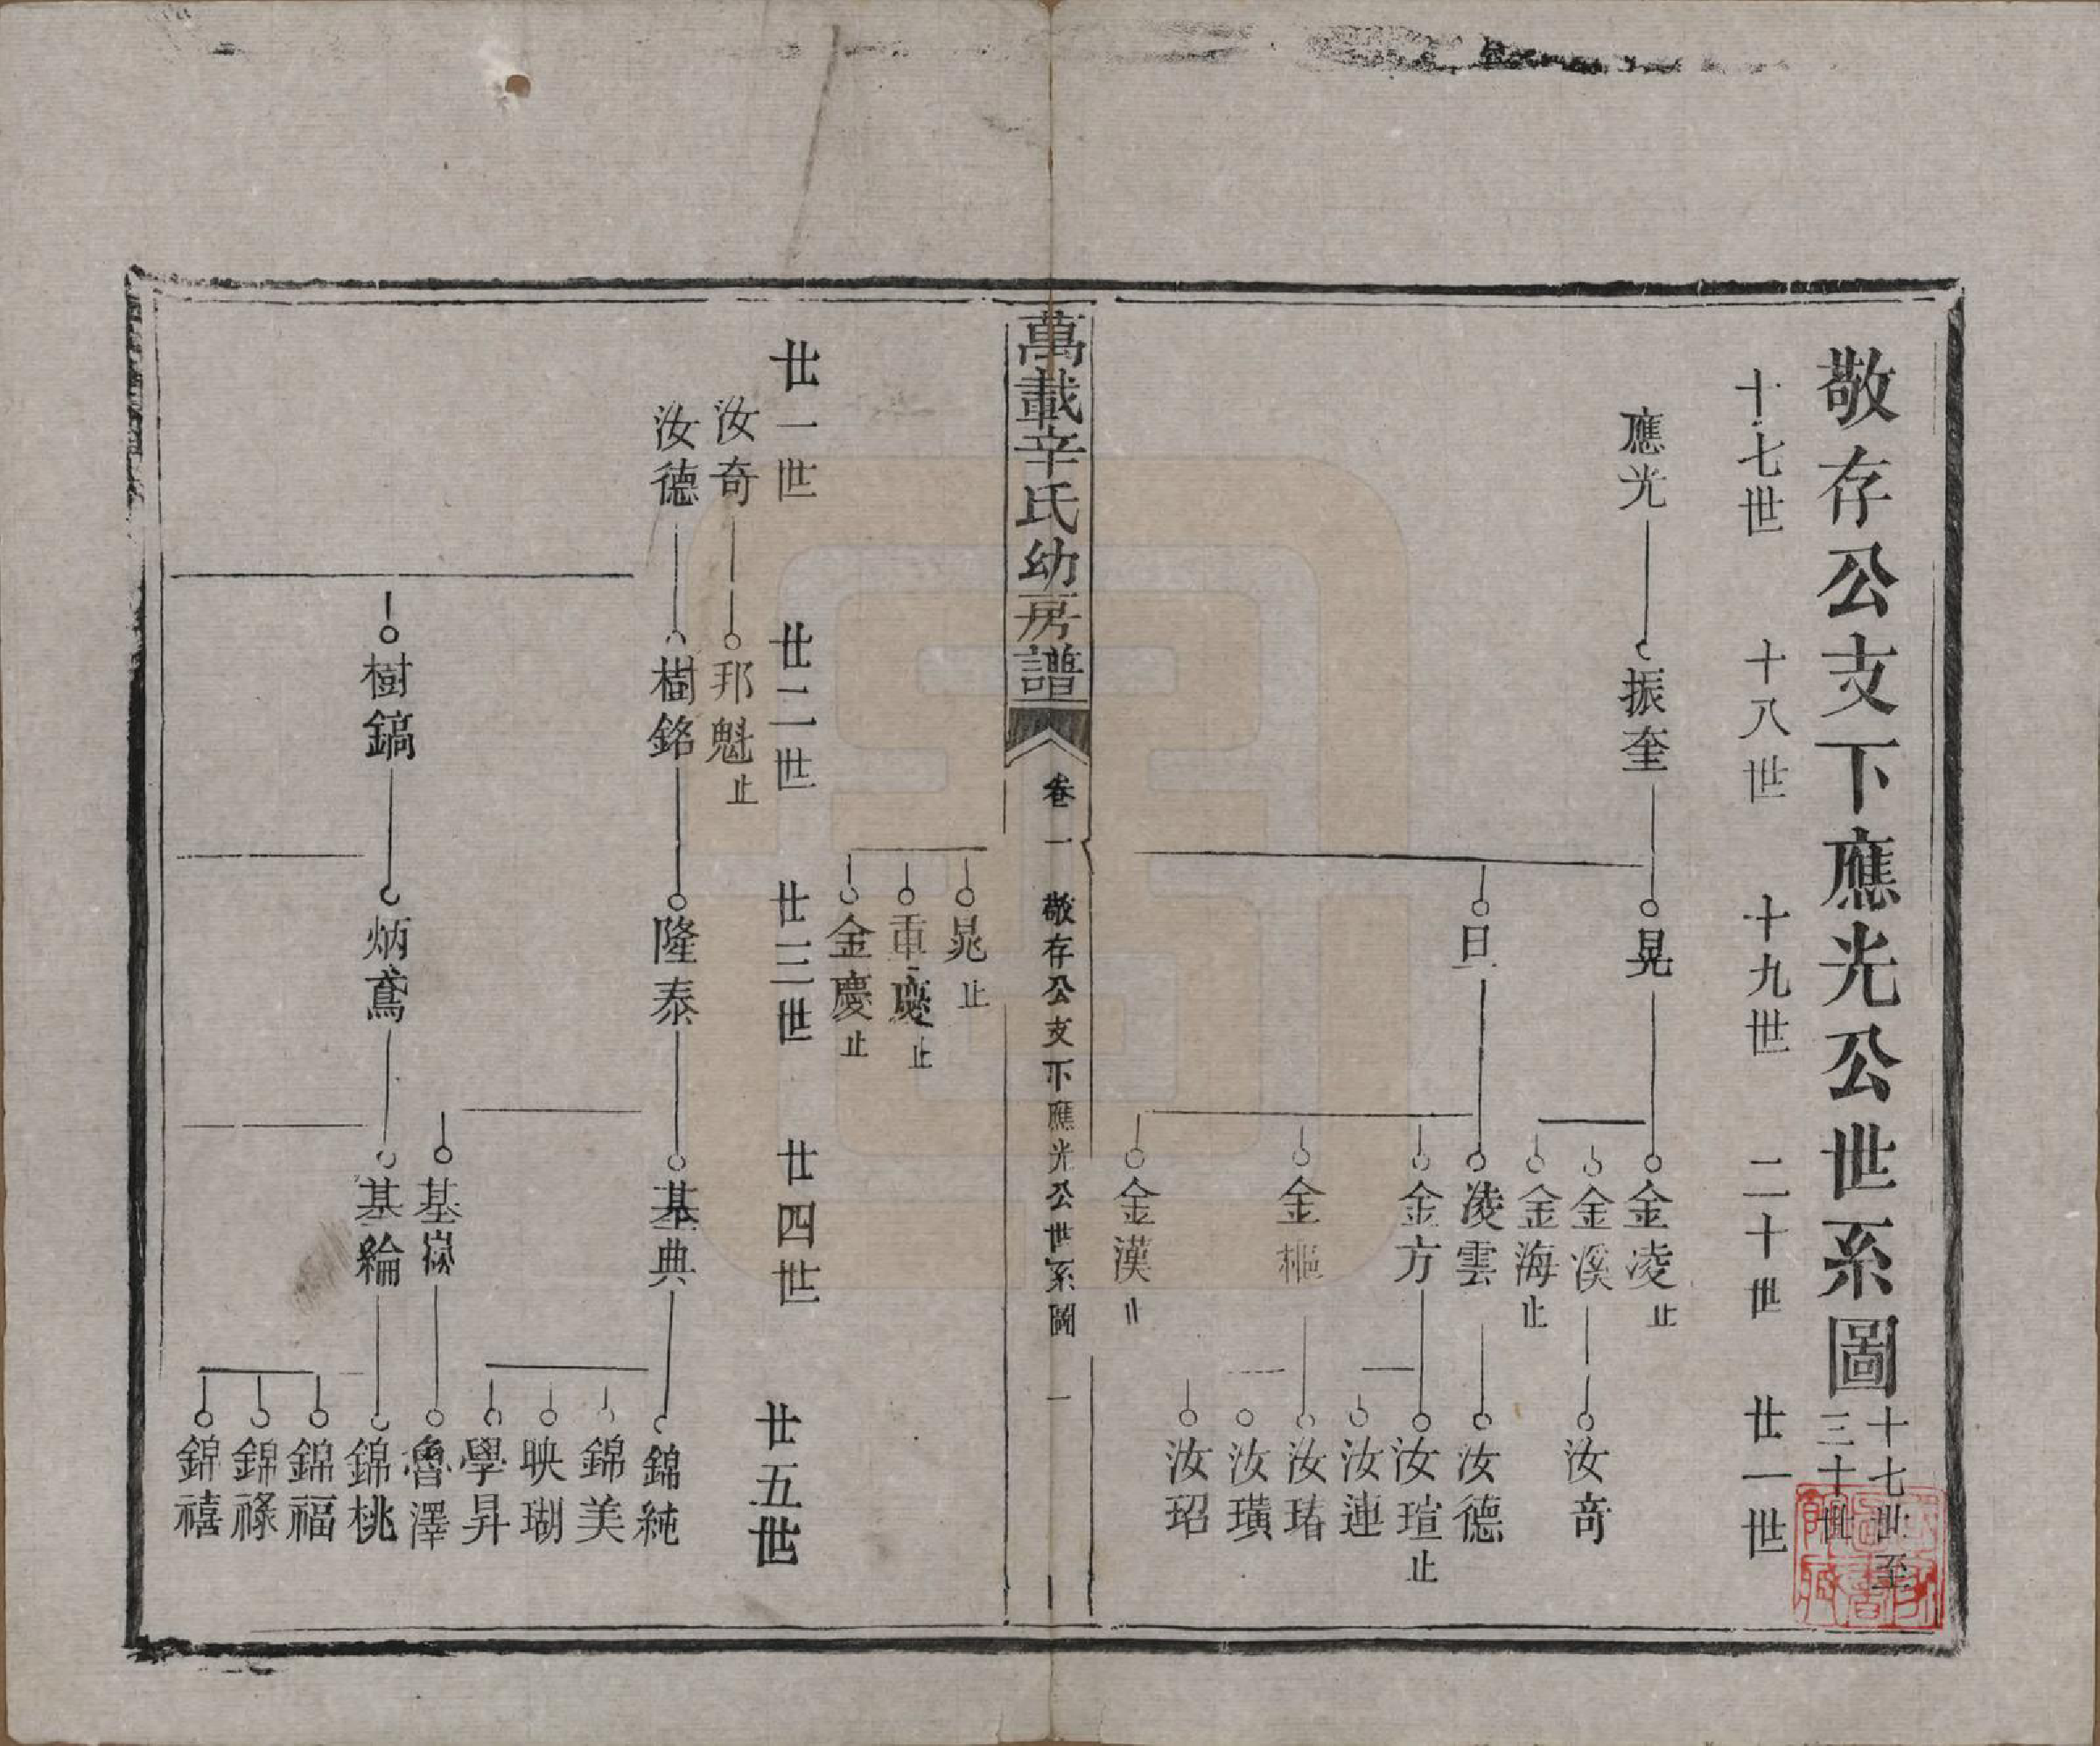 敬存公支下應光公世系圖
十七世至
三十世
十七世
十八世
十九世
二十世
廿一世
應光
振奎
晃
金凌止
金溪
汝奇
金海止
日
凌雲
汝德
金方
汝瑄止
汝連
金樞
汝瑃
汝璜
汝玿
金漢止
萬載辛氏幼房譜
卷一
敬存公支下應光公世系圖
一
晁止
重慶止
金慶止
廿一世
廿二世
廿三世
廿四世
廿五世
汝奇
邦魁止
汝德
樹銘
隆泰
基典
錦純
錦美
映瑚
學昇
基嶽
魯澤
樹鎬
炳鳶
基綸
錦桃
錦福
錦祿
錦禧